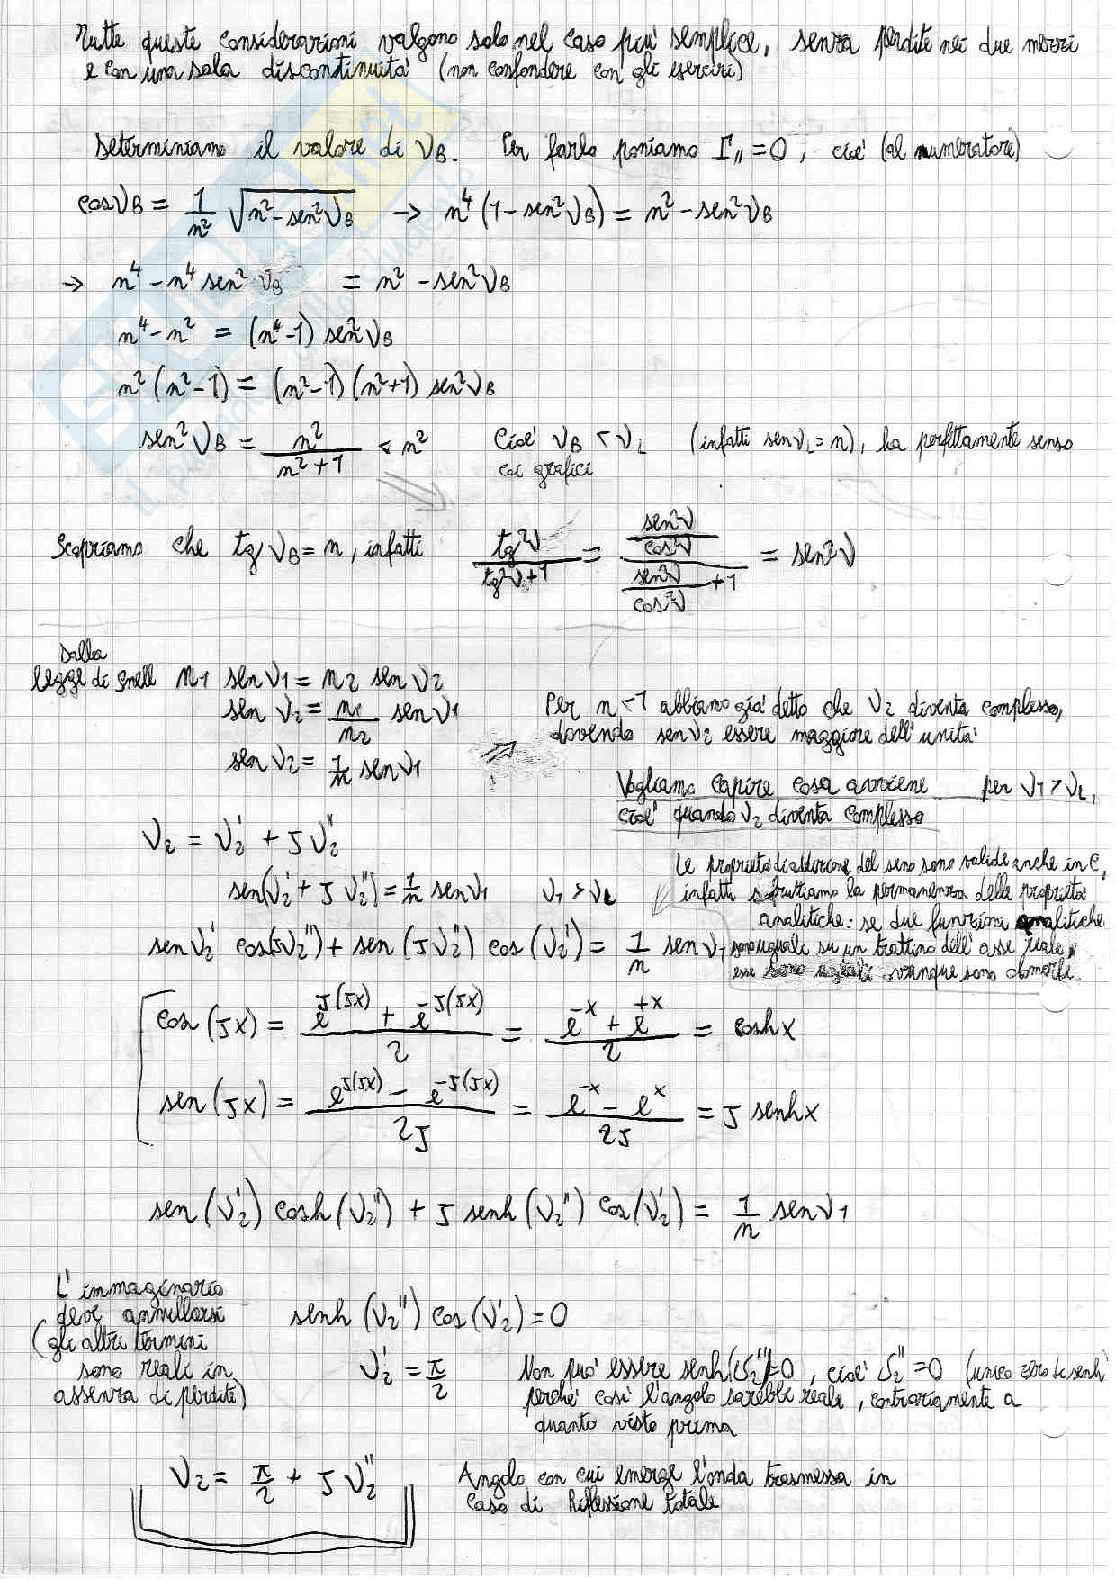 Tutte queste considerazioni valgono solo nel caso piu' semplice, senza perdite nei due mezzi
e con una sola discontinuità (non confondere con gli esercizi)
Determiniamo il valore di ϑB. Per farlo poniamo Γ∥ = 0, cioe' (al numeratore)
cosϑB = 1/n² √(n² - sen²ϑB) → n⁴(1 - sen²ϑB) = n² - sen²ϑB
→ n⁴ - n⁴ sen²ϑB = n² - sen²ϑB
n⁴ - n² = (n⁴-1) sen²ϑB
n²(n²-1) = (n²-1)(n²+1) sen²ϑB
sen²ϑB = n²/(n²+1) < n² Cioe' ϑB < ϑL (infatti senϑL = n), ha perfettamente senso
coi grafici
Scopriamo che tgϑB = n, infatti tg²ϑ/(tg²ϑ+1) = (sen²ϑ/cos²ϑ)/(sen²ϑ/cos²ϑ + 1) = sen²ϑ
Dalla
legge di Snell n1 senϑ1 = n2 senϑ2
senϑ2 = n1/n2 senϑ1
Per n<1 abbiamo gia' detto che ϑ2 diventa complesso,
dovendo senϑ2 essere maggiore dell'unita'
senϑ2 = 1/n senϑ1
Vogliamo capire cosa avviene per ϑ1 > ϑL,
cioe' quando ϑ2 diventa complesso
ϑ2 = ϑ2' + J ϑ2''
Le proprieta di addizione del seno sono valide anche in C,
infatti sfruttiamo la permanenza delle proprietà
analitiche: se due funzioni analitiche
sono uguali su un trattino dell'asse reale,
esse sono uguali ovunque sono olomorfi
sen(ϑ2' + J ϑ2'') = 1/n senϑ1 ϑ1 > ϑL
senϑ2' cos(Jϑ2'') + sen(Jϑ2'') cos(ϑ2') = 1/n senϑ1
cos(Jx) = (e^J(Jx) + e^-J(Jx))/2 = (e^-x + e^+x)/2 = coshx
sen(Jx) = (e^J(Jx) - e^-J(Jx))/2J = (e^-x - e^x)/2J = J senhx
sen(ϑ2') cosh(ϑ2'') + J senh(ϑ2'') cos(ϑ2') = 1/n senϑ1
L'immaginario
deve annullarsi
(gli altri termini
sono reali in
assenza di perdite)
senh(ϑ2'') cos(ϑ2') = 0
ϑ2' = π/2
Non puo' essere senh(ϑ2'')=0, cioe' ϑ2''=0 (unico zero di senh)
perche' cosi' l'angolo sarebbe reale, contrariamente a
quanto visto prima
ϑ2 = π/2 + J ϑ2''
Angolo con cui emerge l'onda trasmessa in
caso di riflessione totale